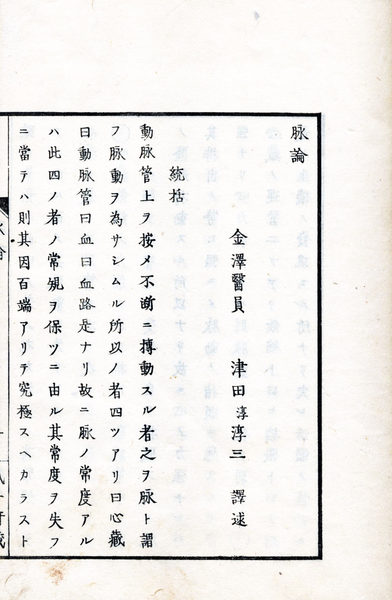 脉論
金澤醫員 津田淳三 譯述
統括
動脉管上ヲ按メ不断ニ搏動スル者之ヲ脉ト謂
フ脉動ヲ為サシムル所以ノ者四ツアリ曰心藏
曰動脉管曰血曰血路是ナリ故ニ脉ノ常度アル
ハ此四ノ者ノ常規ヲ保ツニ由ル其常度ヲ失フ
ニ當テハ則其因百端アリテ究極スヘカラスト